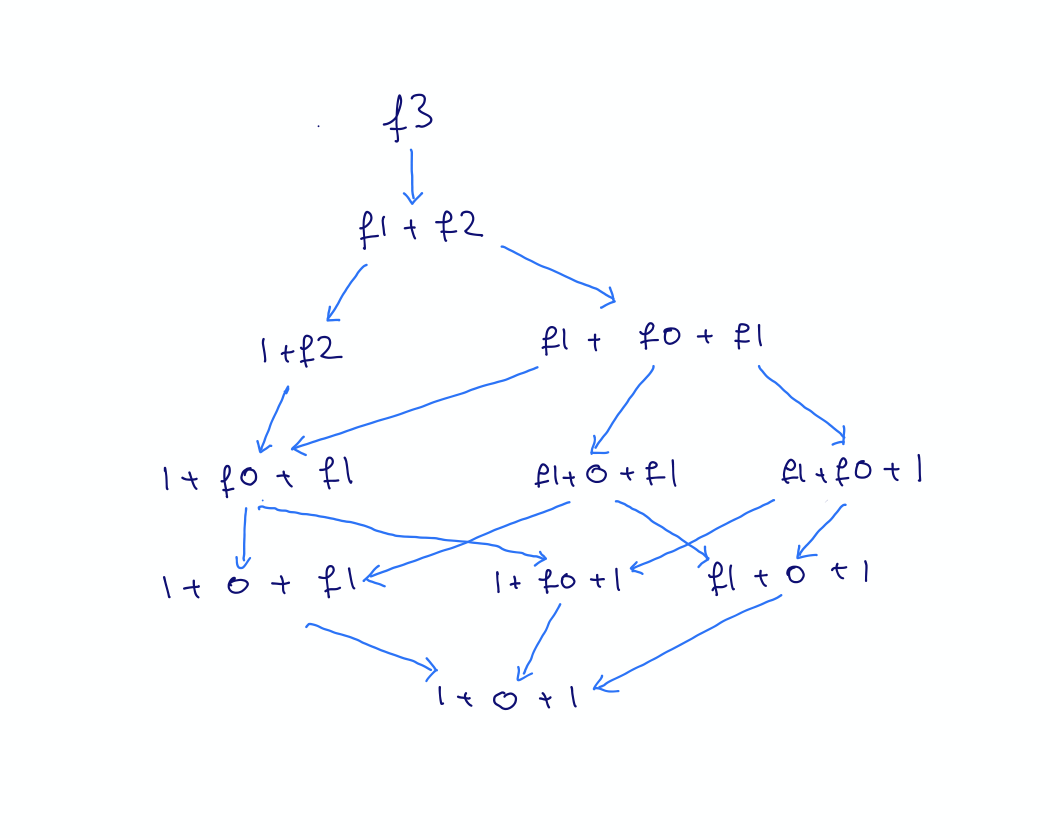 f3
f1 + f2
1 + f2
f1 + f0 + f1
1 + f0 + f1
f1 + 0 + f1
f1 + f0 + 1
1 + 0 + f1
1 + f0 + 1
f1 + 0 + 1
1 + 0 + 1